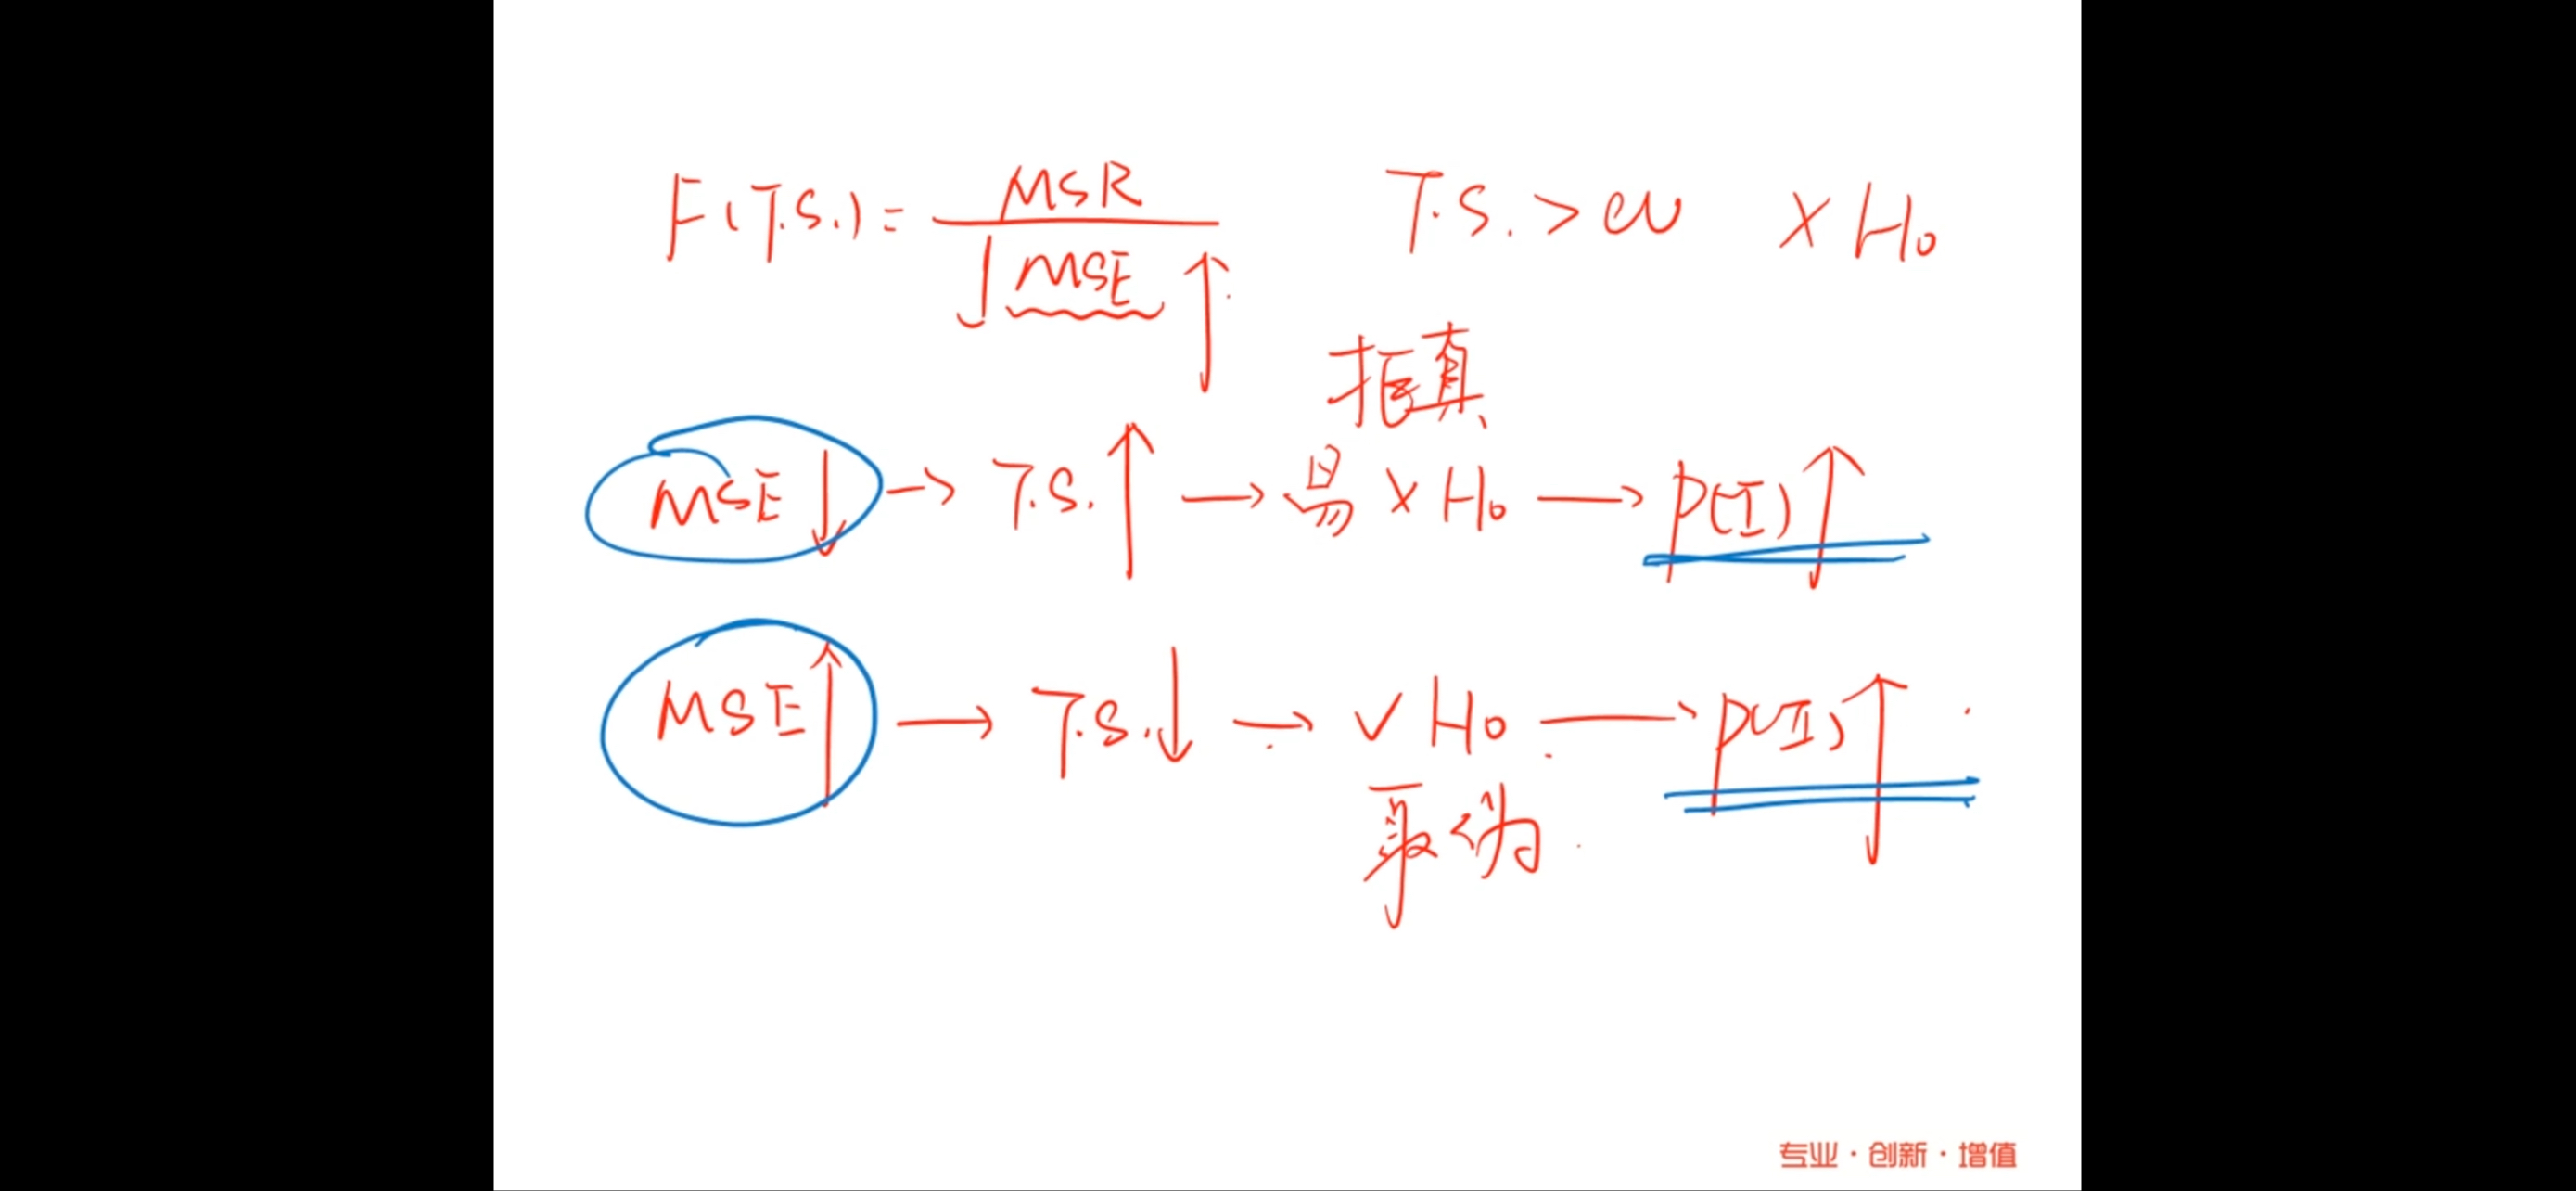 F(T.S.) = MSR / ↓MSE↑ T.S. > CV × H₀
拒真
MSE↓ → T.S.↑ → 易 × H₀ → P(I)↑
MSE↑ → T.S.↓ → ✓ H₀ → P(II)↑
取伪
专业·创新·增值